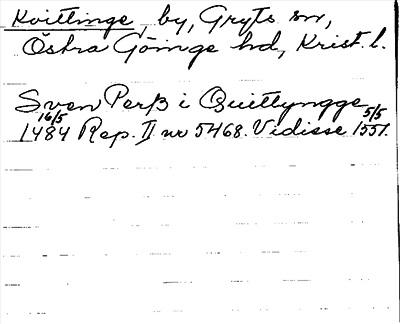 Kvittinge, by, Gryts sn,
Östra Göinge hd, Krist. l.
Sven Perß i Quittyngge
16/5 1484 Rep. II nr 5468. Vidisse 5/5 1551.